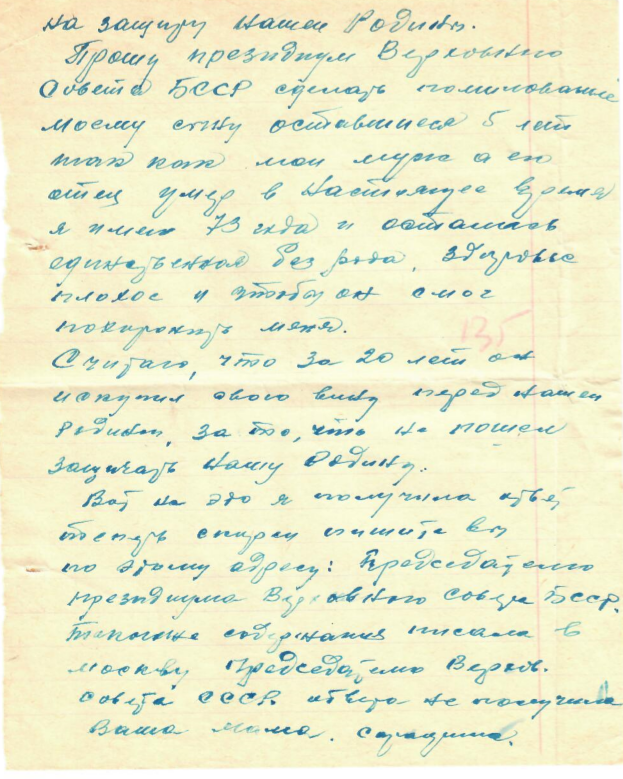 на защиту нашей Родины.
Прошу президиум Верховного
Совета БССР сделать помилование
моему сыну оставшиеся 5 лет
так как мой муж а его
отец умер в настоящее время
я имею 73 года и осталась
единственная без рода, здоровье
плохое и чтобы он смог
похоронить меня.
135
Считаю, что за 20 лет он
искупил свою вину перед нашей
Родиной, за то, что не пошел
защищать нашу Родину.
Вот на это я получила ответ
теперь скорей пишите вы
по этому адресу: Председателю
президиума Верховного совета БССР.
Такого же содержания писала в
москву Председателю Верхов.
совета СССР. ответа не получила
Ваша мама.